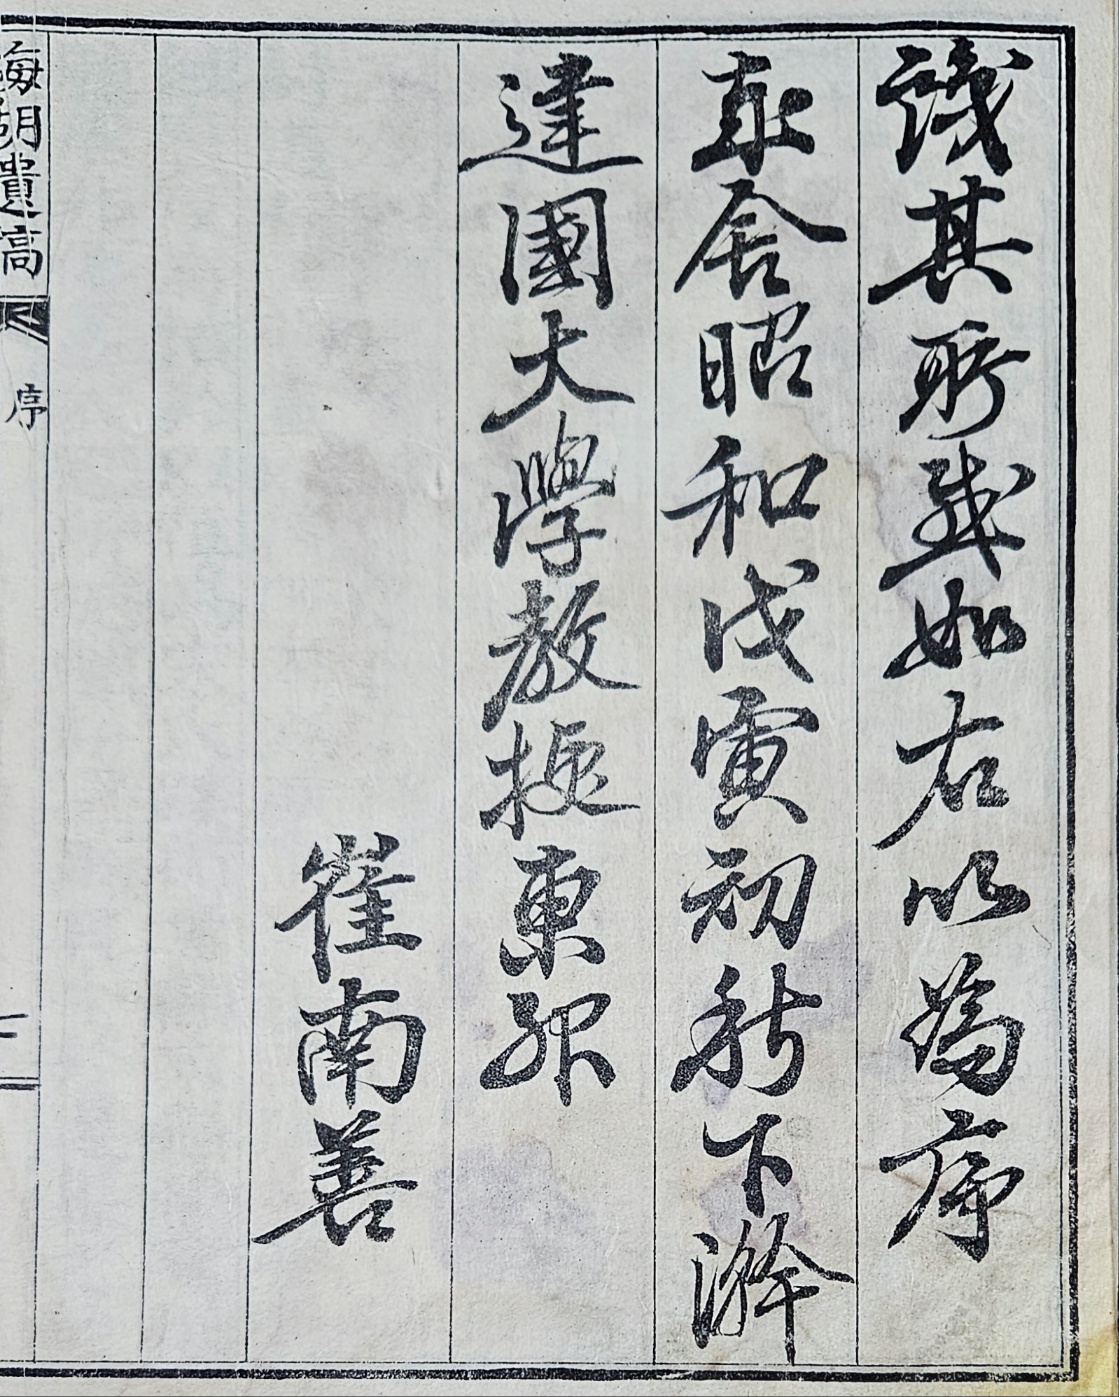 識其所感如右以為序
舍昭和戊寅初秋下澣
建國大學教授東州
崔南善
海湖遺稿 序